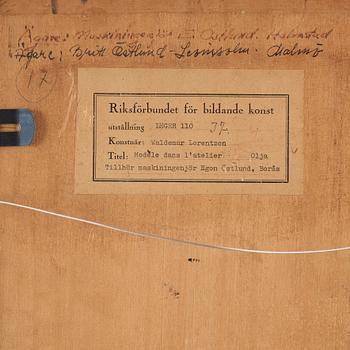 Ägare: Maskiningenjör E. Östlund. Halmstad
Ägare: Britt Östlund- Malmö
17
Riksförbundet för bildande konst
utställning LEGER 110 37
Konstnär: Waldemar Lorentzon
Titel: Modèle dans l'atelier Olja
Tillhör maskiningenjör Egon Östlund, Borås